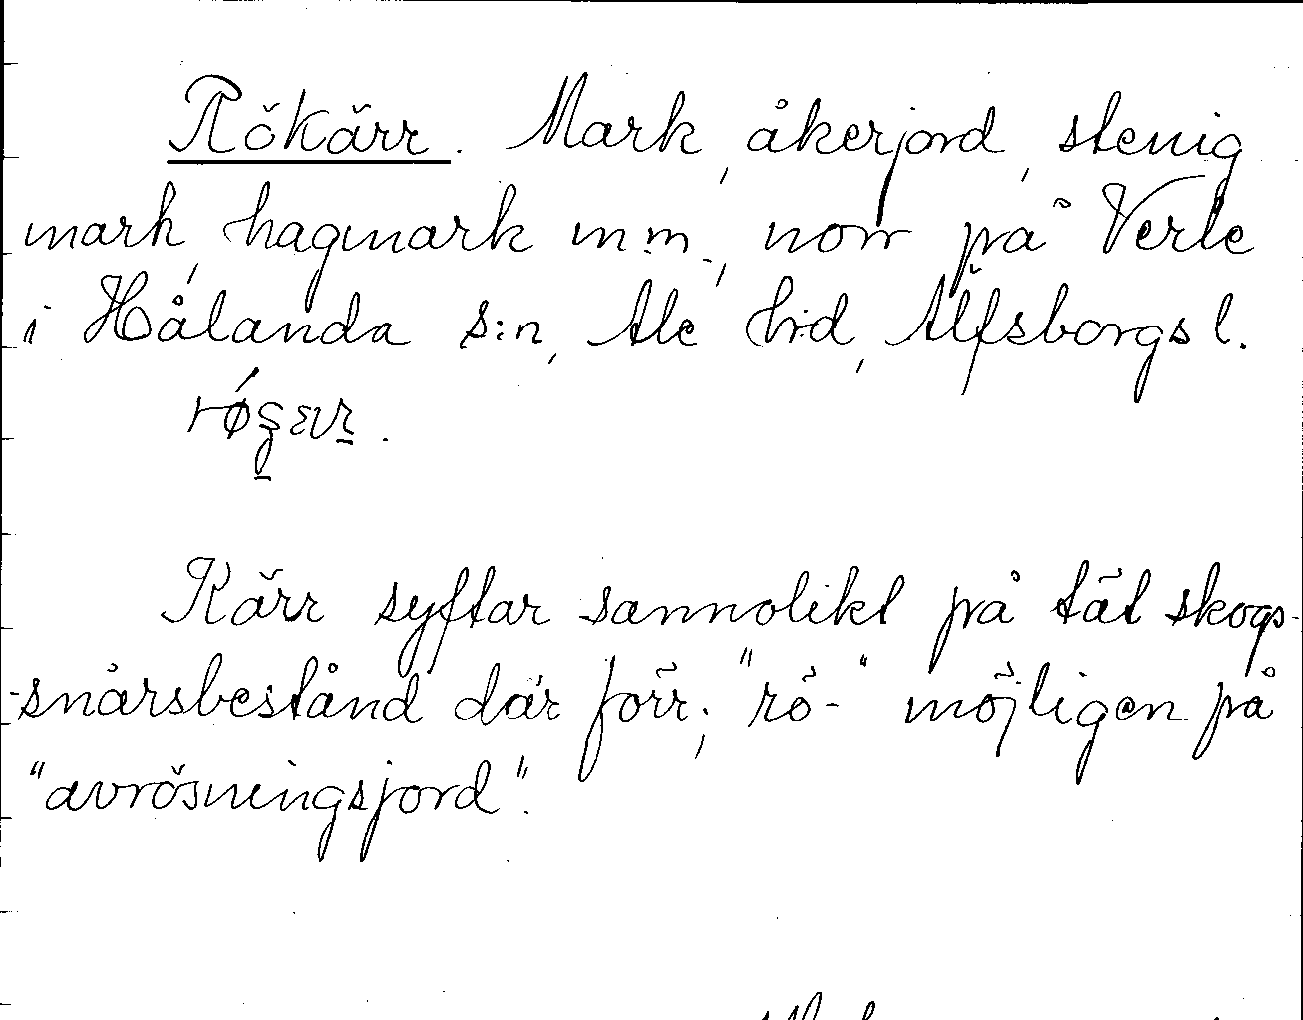 Rökärr. Mark, åkerjord, stenig
mark, hagmark m.m., norr på Verle
i Hålanda s:n, Ale hrd, Älfsborgs l.

Kärr syftar sannolikt på tät skogs-
-snårsbestånd där förr; "rö-" möjligen på
"avrösningsjord".